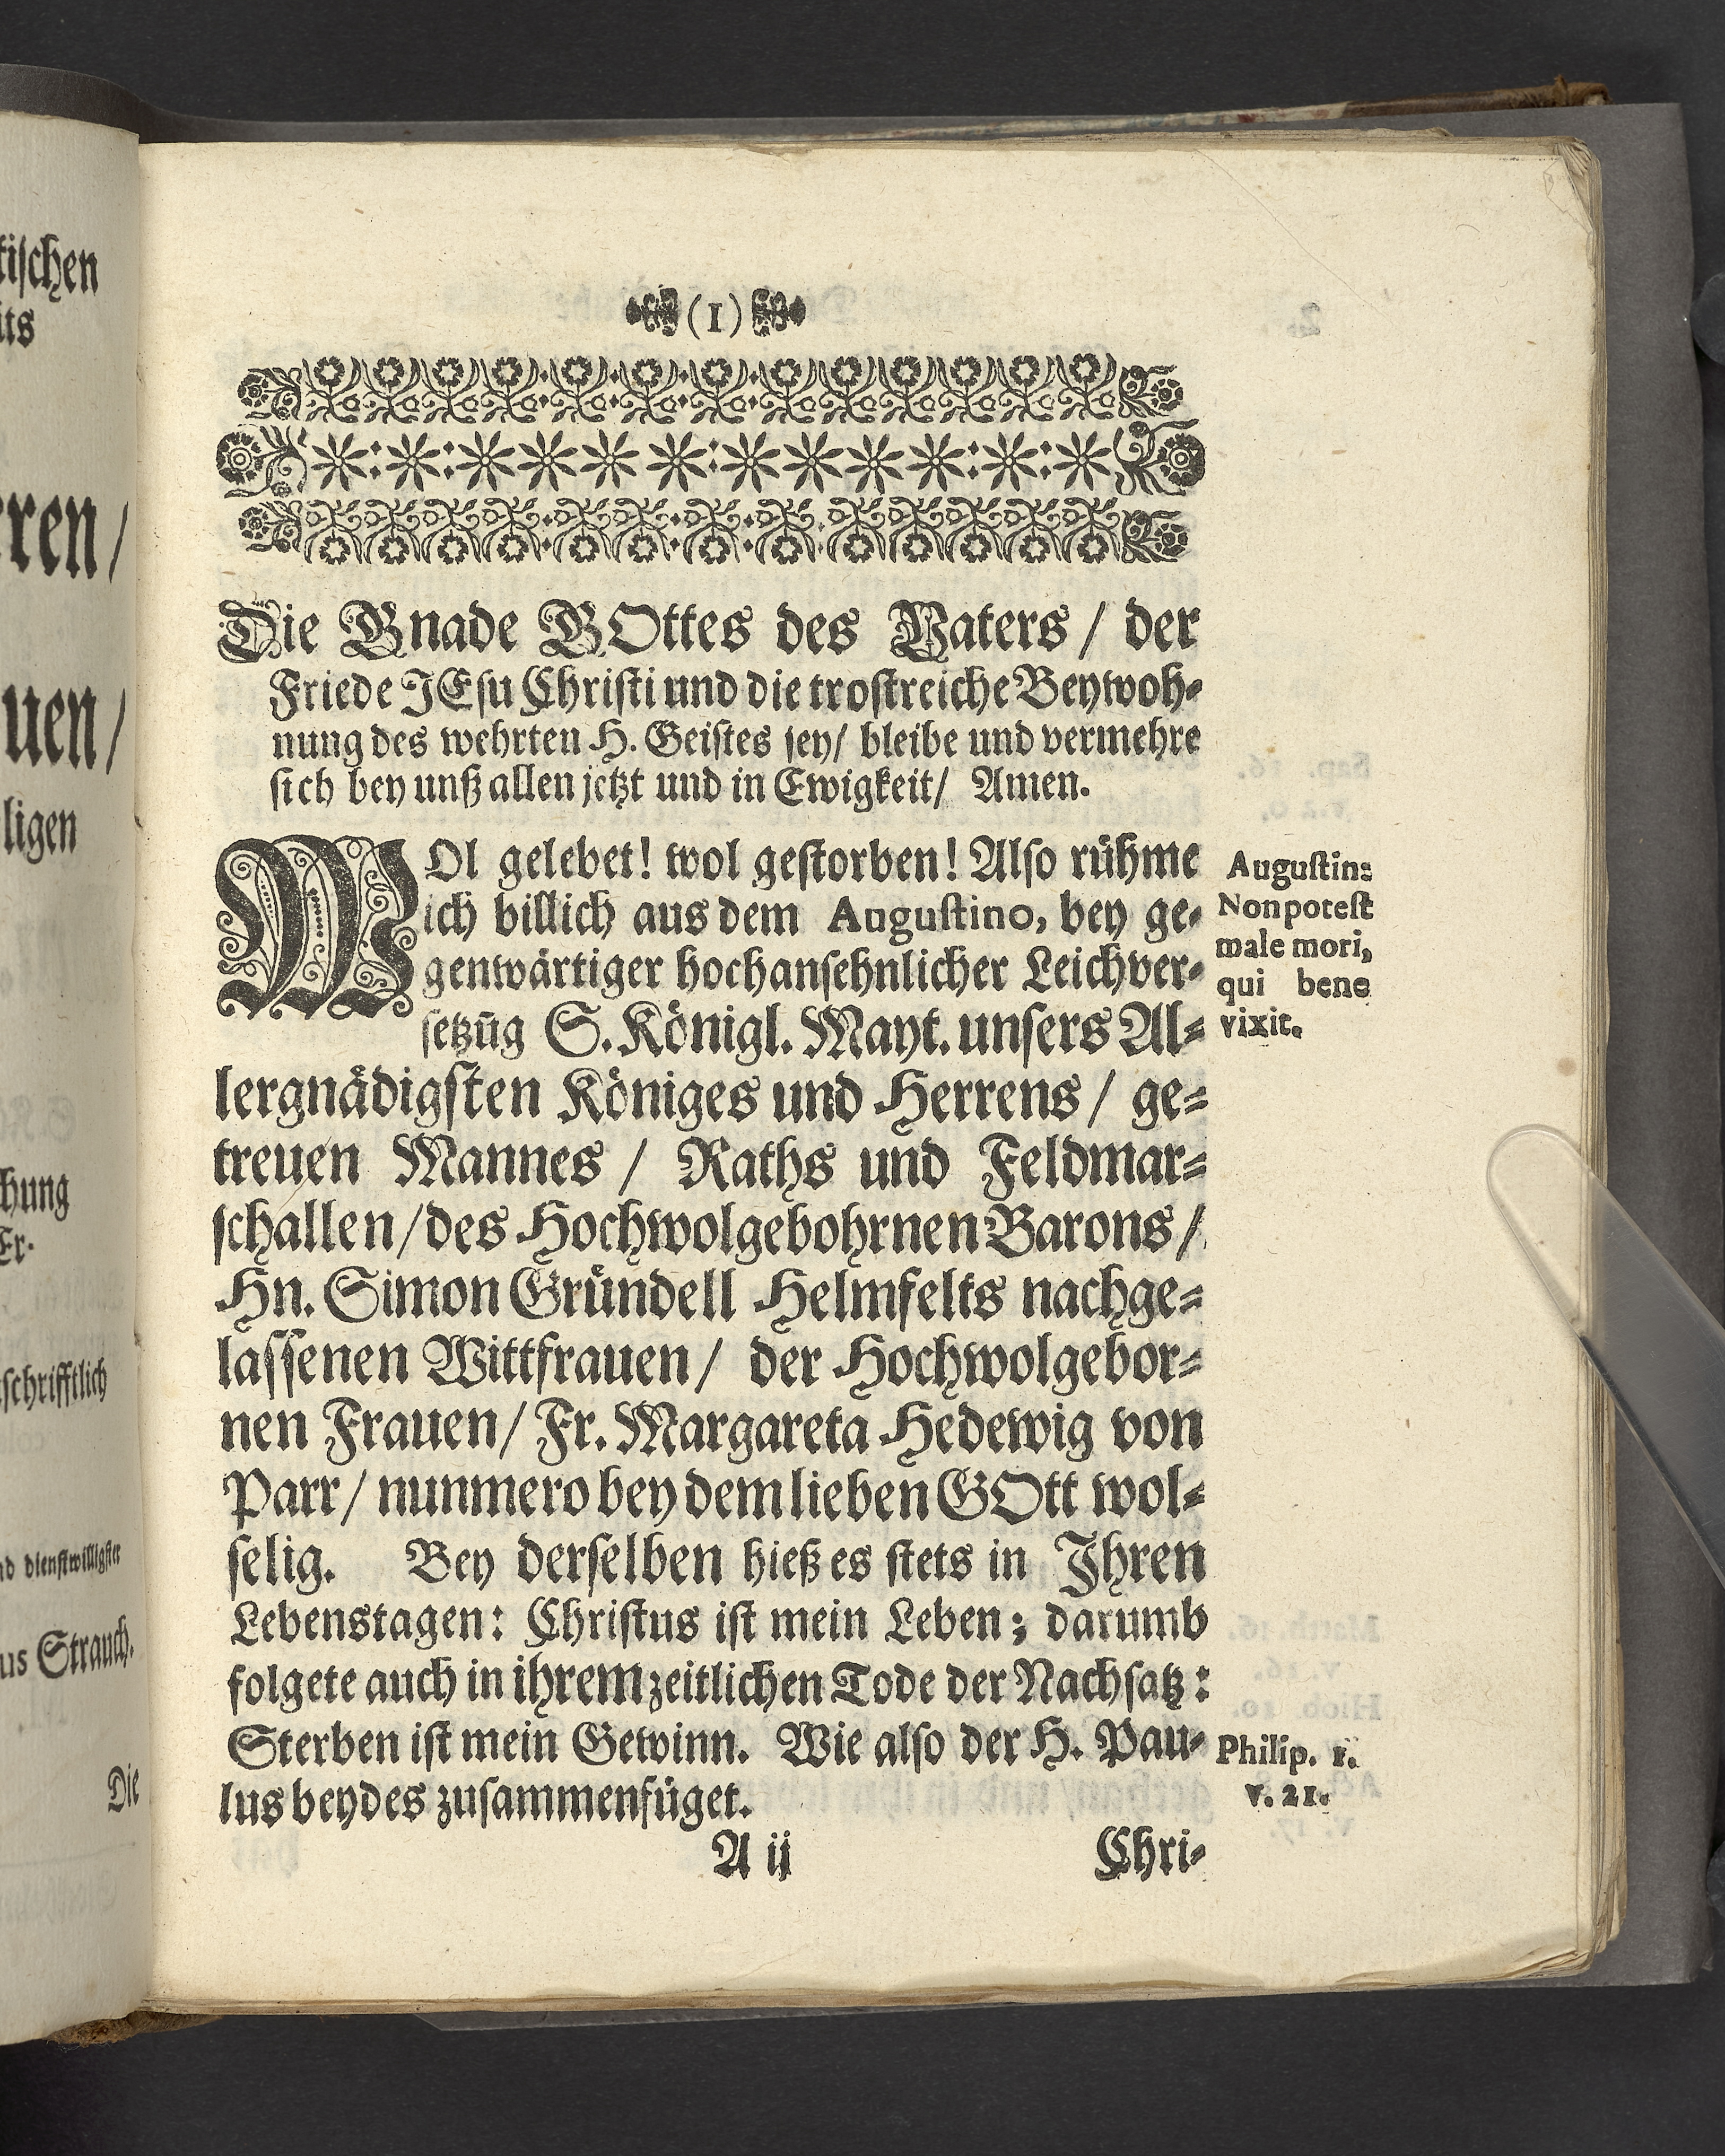 tischen
its
rren/
uen/
ligen
chung
Er-
schrifftlich
nd dienstwilligster
us Strauch.
Die
(1)
Die Gnade GOttes des Vaters / der
Friede JEsu Christi und die trostreiche Beywoh-
nung des wehrten H. Geistes sey/ bleibe und vermehre
sich bey unß allen jetzt und in Ewigkeit/ Amen.
WOl gelebet! wol gestorben! Also rühme
ich billich aus dem Augustino, bey ge-
genwärtiger hochansehnlicher Leichver-
setzūg S. Königl. Mayt. unsers Al-
lergnädigsten Königes und Herrens / ge-
treuen Mannes / Raths und Feldmar-
schallen/des Hochwolgebohrnen Barons /
Hn. Simon Gründell Helmfelts nachge-
lassenen Wittfrauen/ der Hochwolgebor-
nen Frauen/ Fr. Margareta Hedewig von
Parr/ nunmero bey dem lieben GOtt wol-
selig. Bey derselben hieß es stets in Ihren
Lebenstagen: Christus ist mein Leben; darumb
folgete auch in ihrem zeitlichen Tode der Nachsatz:
Sterben ist mein Gewinn. Wie also der H. Pau-
lus beydes zusammenfüget.
A ij
Chri-
Augustin:
Non potest
male mori,
qui bene
vixit.
Philip. 1.
v. 21.